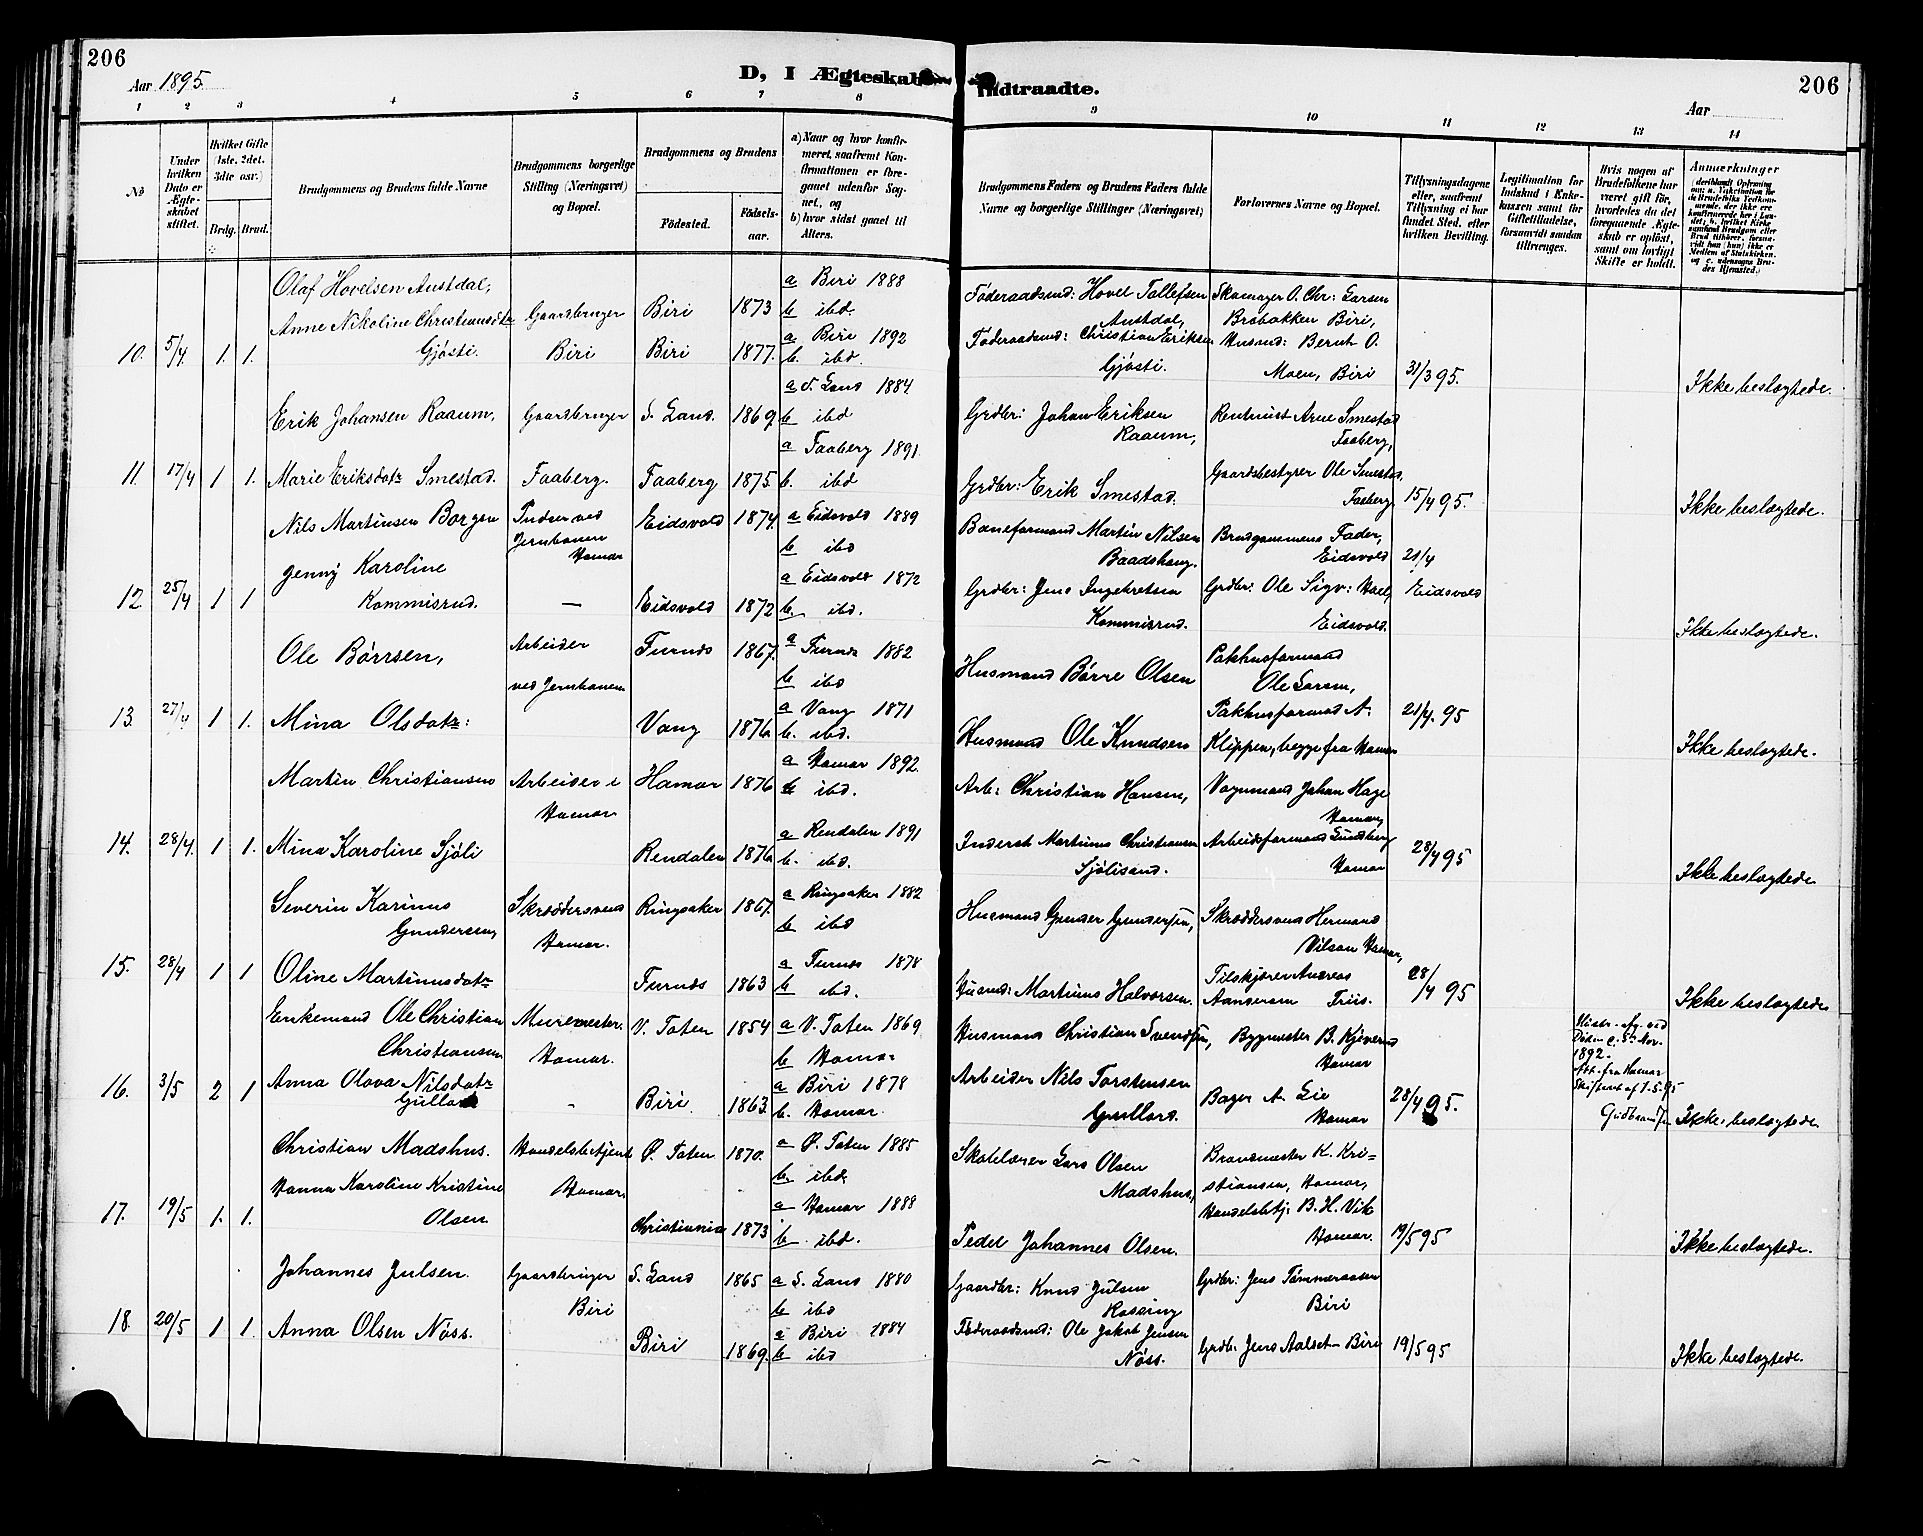 206
Aar 1895.
D, I Ægteskab Indtraadte.
206
Aar
1 2 3 4 5 6 7 8 9 10 11 12 13 14
No
Under hvilken Dato er Ægteskabet stiftet.
Hvilket Gifte (1ste, 2det, 3die osv.)
Brdg. Brud.
Brudgommens og Brudens fulde Navne
Brudgommens borgerlige Stilling (Næringsvei) og Bopæl.
Brudgommens og Brudens
Fødested.
Fødselsaar.
a) Naar og hvor konfirmeret, saafremt Konfirmationen er foregaaet udenfor Sognet, og
b) hvor sidst gaaet til Alters.
Brudgommens Faders og Brudens Faders fulde Navne og borgerlige Stillinger (Næringsvei)
Forlovernes Navne og Bopæl.
Tillysningsdagene eller, saafremt Tillysning ei har fundet Sted, efter hvilken Bevilling.
Legitimation for Indskud i Enkekassen samt for Giftetilladelse, forsaavidt saadan tiltrænges.
Hvis nogen af Brudefolkene har været gift før, hvorledes da det foregaaende Ægteskab er opløst, samt om lovligt Skifte er holdt.
Anmærkninger
Olaf Hovelsen Austdal,
Anne Nikoline Christiansdtr
Gjøsti.
10. 5/4 1. 1.
Gaardbruger
Biri
Biri 1873
Biri 1877.
a Biri 1888
b ibd.
a Biri 1892
b ibd.
Føderaadsmd: Hovel Tollefsen
Austdal,
Føderaadsmd: Christian Eriksen
Gjøsti.
Skomager O. Chr: Larsen
Brobakken Biri,
Husmd: Bernt O.
Moen, Biri
31/3 95.
Ikke beslægtede.
Erik Johansen Raaum,
11. 17/4 1 1. Marie Eriksdatr Smestad.
Gaardbruger
Faaberg.
S. Land. 1869.
Faaberg 1875.
a S. Land 1884.
b ibd
a Faaberg 1891.
b. ibd
Grdbr: Johan Eriksen
Raaum,
Grdbr: Erik Smestad.
Rentnist Arne Smestad
Faaberg,
Gaardsbestyrer Ole Smestad,
Faaberg
15/4 95.
Ikke beslægtede.
Nils Martinsen Borgen
Jenny Karoline
Kommisrud.
12. 25/4 1 1
Pudser ved
Jernbanen
Hamar
—
Eidsvold 1874.
Eidsvold 1872
a Eidsvold 1889
b ibd
a Eidsvold 1872
b ibd.
Baneformand Martin Nilsen
Baadshaug.
Grdbr: Jens Ingebretsen
Kommisrud.
Brudgommens Fader,
Eidsvold
Grdbr: Ole Sigv: Hoel,
Eidsvold.
21/4
Eidsvold
Ikke beslægtede.
Ole Børrsen,
13. 27/4 1 1. Mina Olsdatr:
Arbeider
ved Jernbanen
Furnes 1867.
Vang 1876.
a Furnes 1882
b ibd
a Vang 1871
b. ibd.
Husmand Børre Olsen
Husmand Ole Knudsen
Pakhusformand
Ole Larsen,
Pakhusformand A.
Klippen, begge fra Hamar
21/4. 95
Ikke beslægtede.
Martin Christiansen
14. 28/4. 1 1. Mina Karoline Sjøli
Arbeider i
Hamar
Hamar 1876
Rendalen 1876
a Hamar 1892.
b ibd.
a Rendalen 1891
b. ibd.
Arb: Christian Hansen,
Inderst Martinus Christiansen
Sjølisand.
Vognmand Johan Hage
Hamar,
Arbeidsformand Lundberg
Hamar
28/4 95
Ikke beslægtede
Severin Karinus
Gundersen,
15. 28/4 1 1 Oline Martinusdatr
Skræddersvend
Hamar.
Ringsaker 1867.
Furnes 1863
a Ringsaker 1882
b ibd
a Furnes 1878
b ibd.
Husmand Gunder Gundersen,
Husmd: Martinus Halvorsen.
Skræddersvend Hermand
Nilsen Hamar,
Tilskjærer Andreas
28/4 95
Ikke beslægtede
Enkemand Ole Christian
Christiansen
Anna Olava Nilsdatr
Gullord
16. 3/5 2 1
Muremester.
Hamar.
V. Toten 1854
Biri. 1863.
a V. Toten 1869.
b Hamar
a Biri 1878
b. Hamar.
Husmand Christian Svendsen,
Arbeider Nils Torstensen
Gullord.
Bygmester B. Kjeverud
Hamar
Bager A. Lie
Hamar
28/4 95.
1892.
Att. fra Hamar
Skifteret af 1-5-95
Gudbrandsen
Ikke beslægtede
Christian Madshus.
Hanna Karoline Kristine
Olsen
17. 19/5 1. 1.
Handelsbetjent
Hamar.
Ø. Toten 1870.
Christiania 1873
a Ø. Toten 1885
b ibd.
a Hamar 1888
b. ibd.
Skolelærer Lars Olsen
Madshus,
Pedel Johannes Olsen.
Brandmester K. Kristiansen, Hamar,
Handelsbtj. B. H. Vik
Hamar.
19/5 95
Ikke beslægtede.
Johannes Julsen.
18. 20/5 1 1. Anna Olsen Nøss.
Gaardbruger
Biri
S. Land 1865
Biri 1869.
a S. Land 1880
b ibd
a Biri 1884
b ibd
Gaardbr: Knud Julsen
Føderaadsmd: Ole Jakob Jensen
Nøss.
Grdbr: Jens Tømmeraasen
Biri
Grdb. Jens Aalset Biri
19/5 95
Ikke beslægtede.